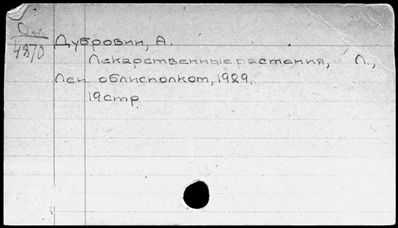 4870
Дубровин, А.
Лекарственные растения, Л.,
Лен. облисполком, 1929.
19 стр.